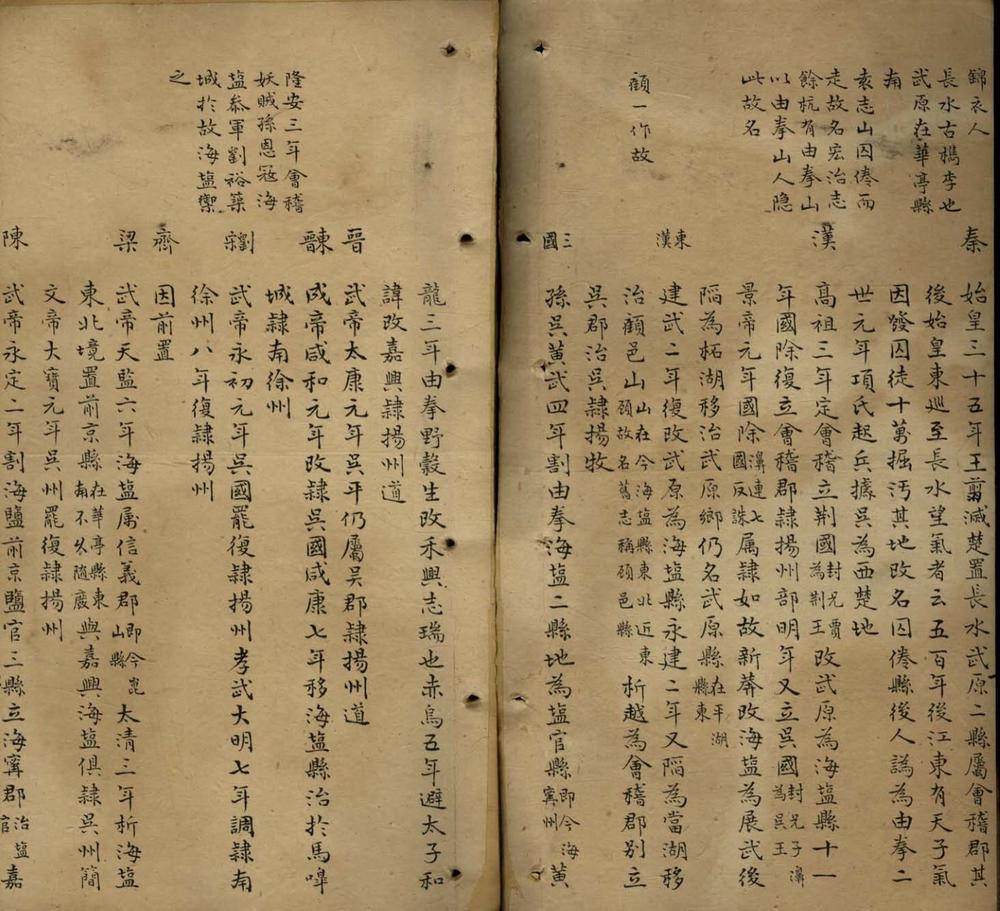 錦衣人
長水古檇李也
武原在華亭縣
南
袁志山囚倦而
走故名宏治志
餘杭有由拳山
以由拳山人隐
此故名
顧一作故
秦
始皇三十五年王翦滅楚置長水武原二縣屬會稽郡其
後始皇東巡至長水望氣者云五百年後江東有天子氣
因發囚徒十萬掘汚其地改名囚倦縣後人譌為由拳二
世元年項氏起兵據吳為西楚地
漢
高祖三年定會稽立荆國封兄賈為荆王改武原為海塩縣十一
年國除復立會稽郡隸揚州部明年又立吳國封兄子濞為吳王
景帝元年國除濞連七國反誅属隸如故新莽改海塩為展武後
陷為柘湖移治武原鄉仍名武原縣在平湖縣東
東漢
建武二年復改武原為海塩縣永建二年又陷為當湖移
治顧邑山山在今海塩縣東北近東顧故名舊志稱顧邑縣析越為會稽郡别立
吳郡治吳隸揚牧
三國
孫吳黄武四年割由拳海塩二縣地為塩官縣即今海寧州黄
龍三年由拳野穀生改禾興志瑞也赤烏五年避太子和
諱改嘉興隸揚州道
隆安三年會稽
妖賊孫恩冦海
塩叅軍劉裕築
城於故海塩禦
之
晉
武帝太康元年吳平仍屬吳郡隸揚州道
東晉
成帝咸和元年改隸吳國咸康七年移海塩縣治於馬嘷
城隸南徐州
劉宋
武帝永初元年吳國罷復隸揚州孝武大明七年調隸南
徐州八年復隸揚州
齊
因前置
梁
武帝天監六年海塩属信義郡即今崑山縣太清三年析海塩
東北境置前京縣在華亭縣東南不久隨廢與嘉興海塩俱隸吳州簡
文帝大寶元年吳州罷復隸揚州
陳
武帝永定二年割海鹽前京鹽官三縣立海寧郡治塩官嘉